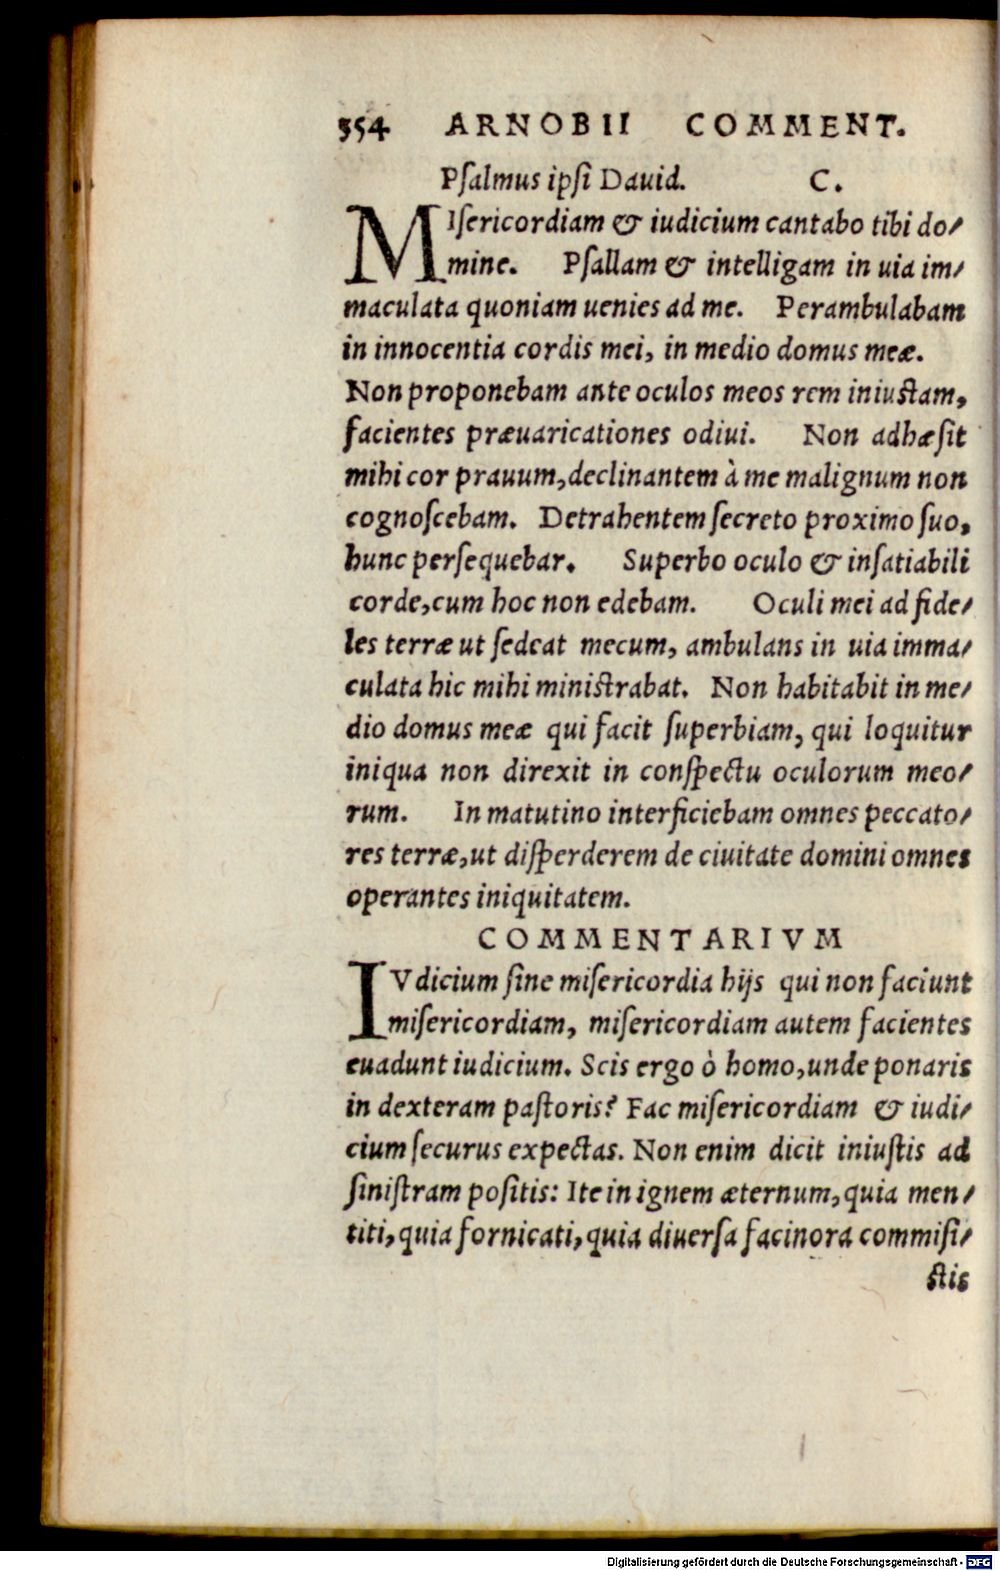 354 ARNOBII COMMENT.
Pſalmus ipſi Dauid. C.
MIſericordiam & iudicium cantabo tibi do/
mine. Pſallam & intelligam in uia im/
maculata quoniam uenies ad me. Perambulabam
in innocentia cordis mei, in medio domus meæ.
Non proponebam ante oculos meos rem iniuſtam,
facientes præuaricationes odiui. Non adhæſit
mihi cor prauum, declinantem à me malignum non
cognoſcebam. Detrahentem ſecreto proximo ſuo,
hunc perſequebar. Superbo oculo & inſatiabili
corde, cum hoc non edebam. Oculi mei ad fide/
les terræ ut ſedeat mecum, ambulans in uia imma/
culata hic mihi miniſtrabat. Non habitabit in me/
dio domus meæ qui facit ſuperbiam, qui loquitur
iniqua non direxit in conſpectu oculorum meo/
rum. In matutino interficiebam omnes peccato/
res terræ, ut diſperderem de ciuitate domini omnes
operantes iniquitatem.
COMMENTARIVM
IVdicium ſine miſericordia hijs qui non faciunt
miſericordiam, miſericordiam autem facientes
euadunt iudicium. Scis ergo ò homo, unde ponaris
in dexteram paſtoris? Fac miſericordiam & iudi/
cium ſecurus expectas. Non enim dicit iniuſtis ad
ſiniſtram poſitis: Ite in ignem æternum, quia men/
titi, quia fornicati, quia diuerſa facinora commiſi/
ſtis
Digitalisierung gefördert durch die Deutsche Forschungsgemeinschaft - DFG